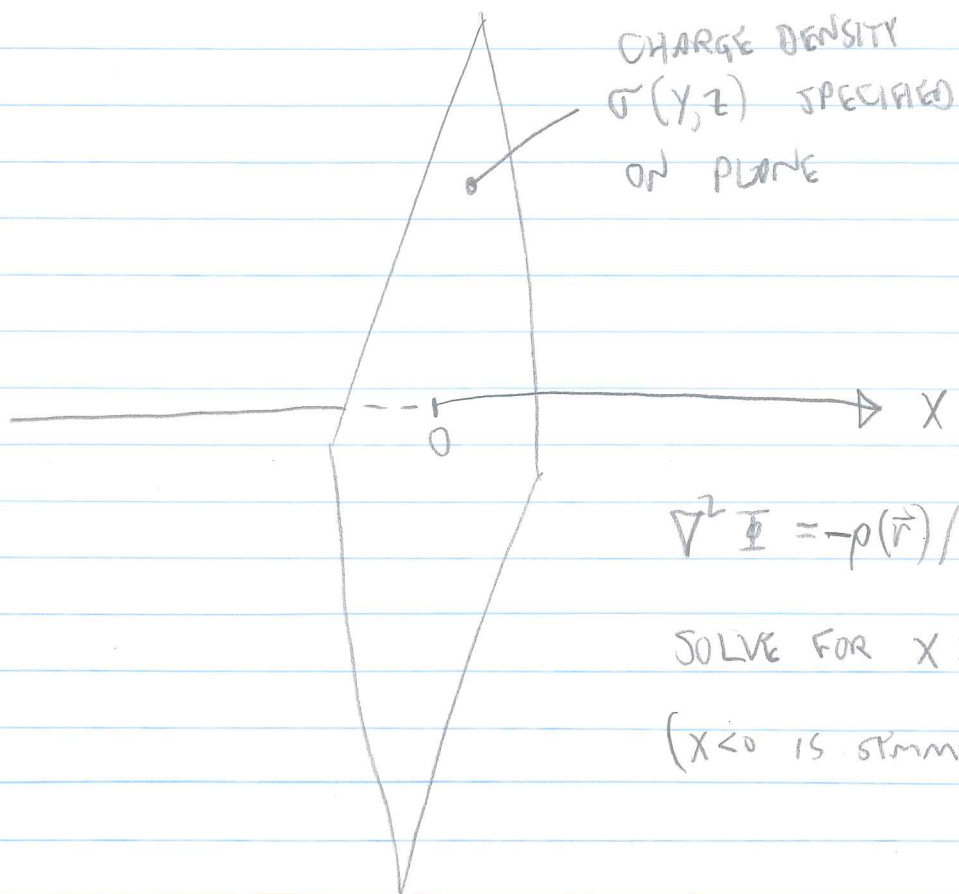 CHARGE DENSITY
σ(Y,Z) SPECIFIED
ON PLANE
X
0
∇² Φ = -ρ(r⃗)/
SOLVE FOR X
(X<0 IS SYMM